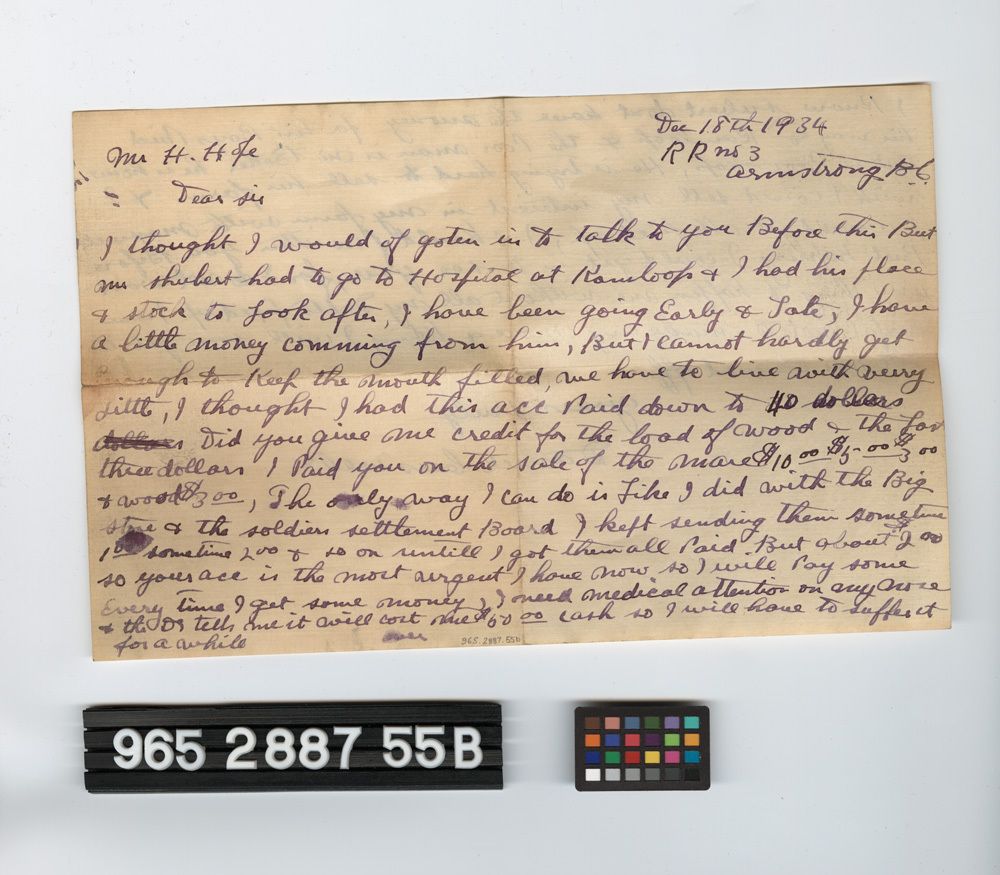 Dec 18th 1934
R R no 3
Armstrong B.C.
Mr H. Hope
Dear sir
I thought I would of goten in to talk to you Before this But
mr shubert had to go to Hospital at Kamloops & I had his place
& stock to look after, I have been going Early & Late, I have
a little money comming from him, But I cannot hardly get
Enough to Keep the mouth filled, we have to live with verry
little, I thought I had this acc Paid down to 40 dollars
Did you give me credit for the load of wood & the
three dollars I Paid you on the sale of the mare $10 00 $5 00 $3 00
& wood $3 00, The only way I can do is Like I did with the Big
store & the soldiers settlement Board I kept sending them sometime
1 00 sometime 2 00 & so on untill I got them all Paid But about 2 00
so your acc is the most urgent I have now so I will Pay some
Every time I get some money, I need medical attention on my nose
& the Dr tells me it will cost me $50 00 cash so I will have to suffer it
for a while
over
965.2887.55b
965 2887 55B